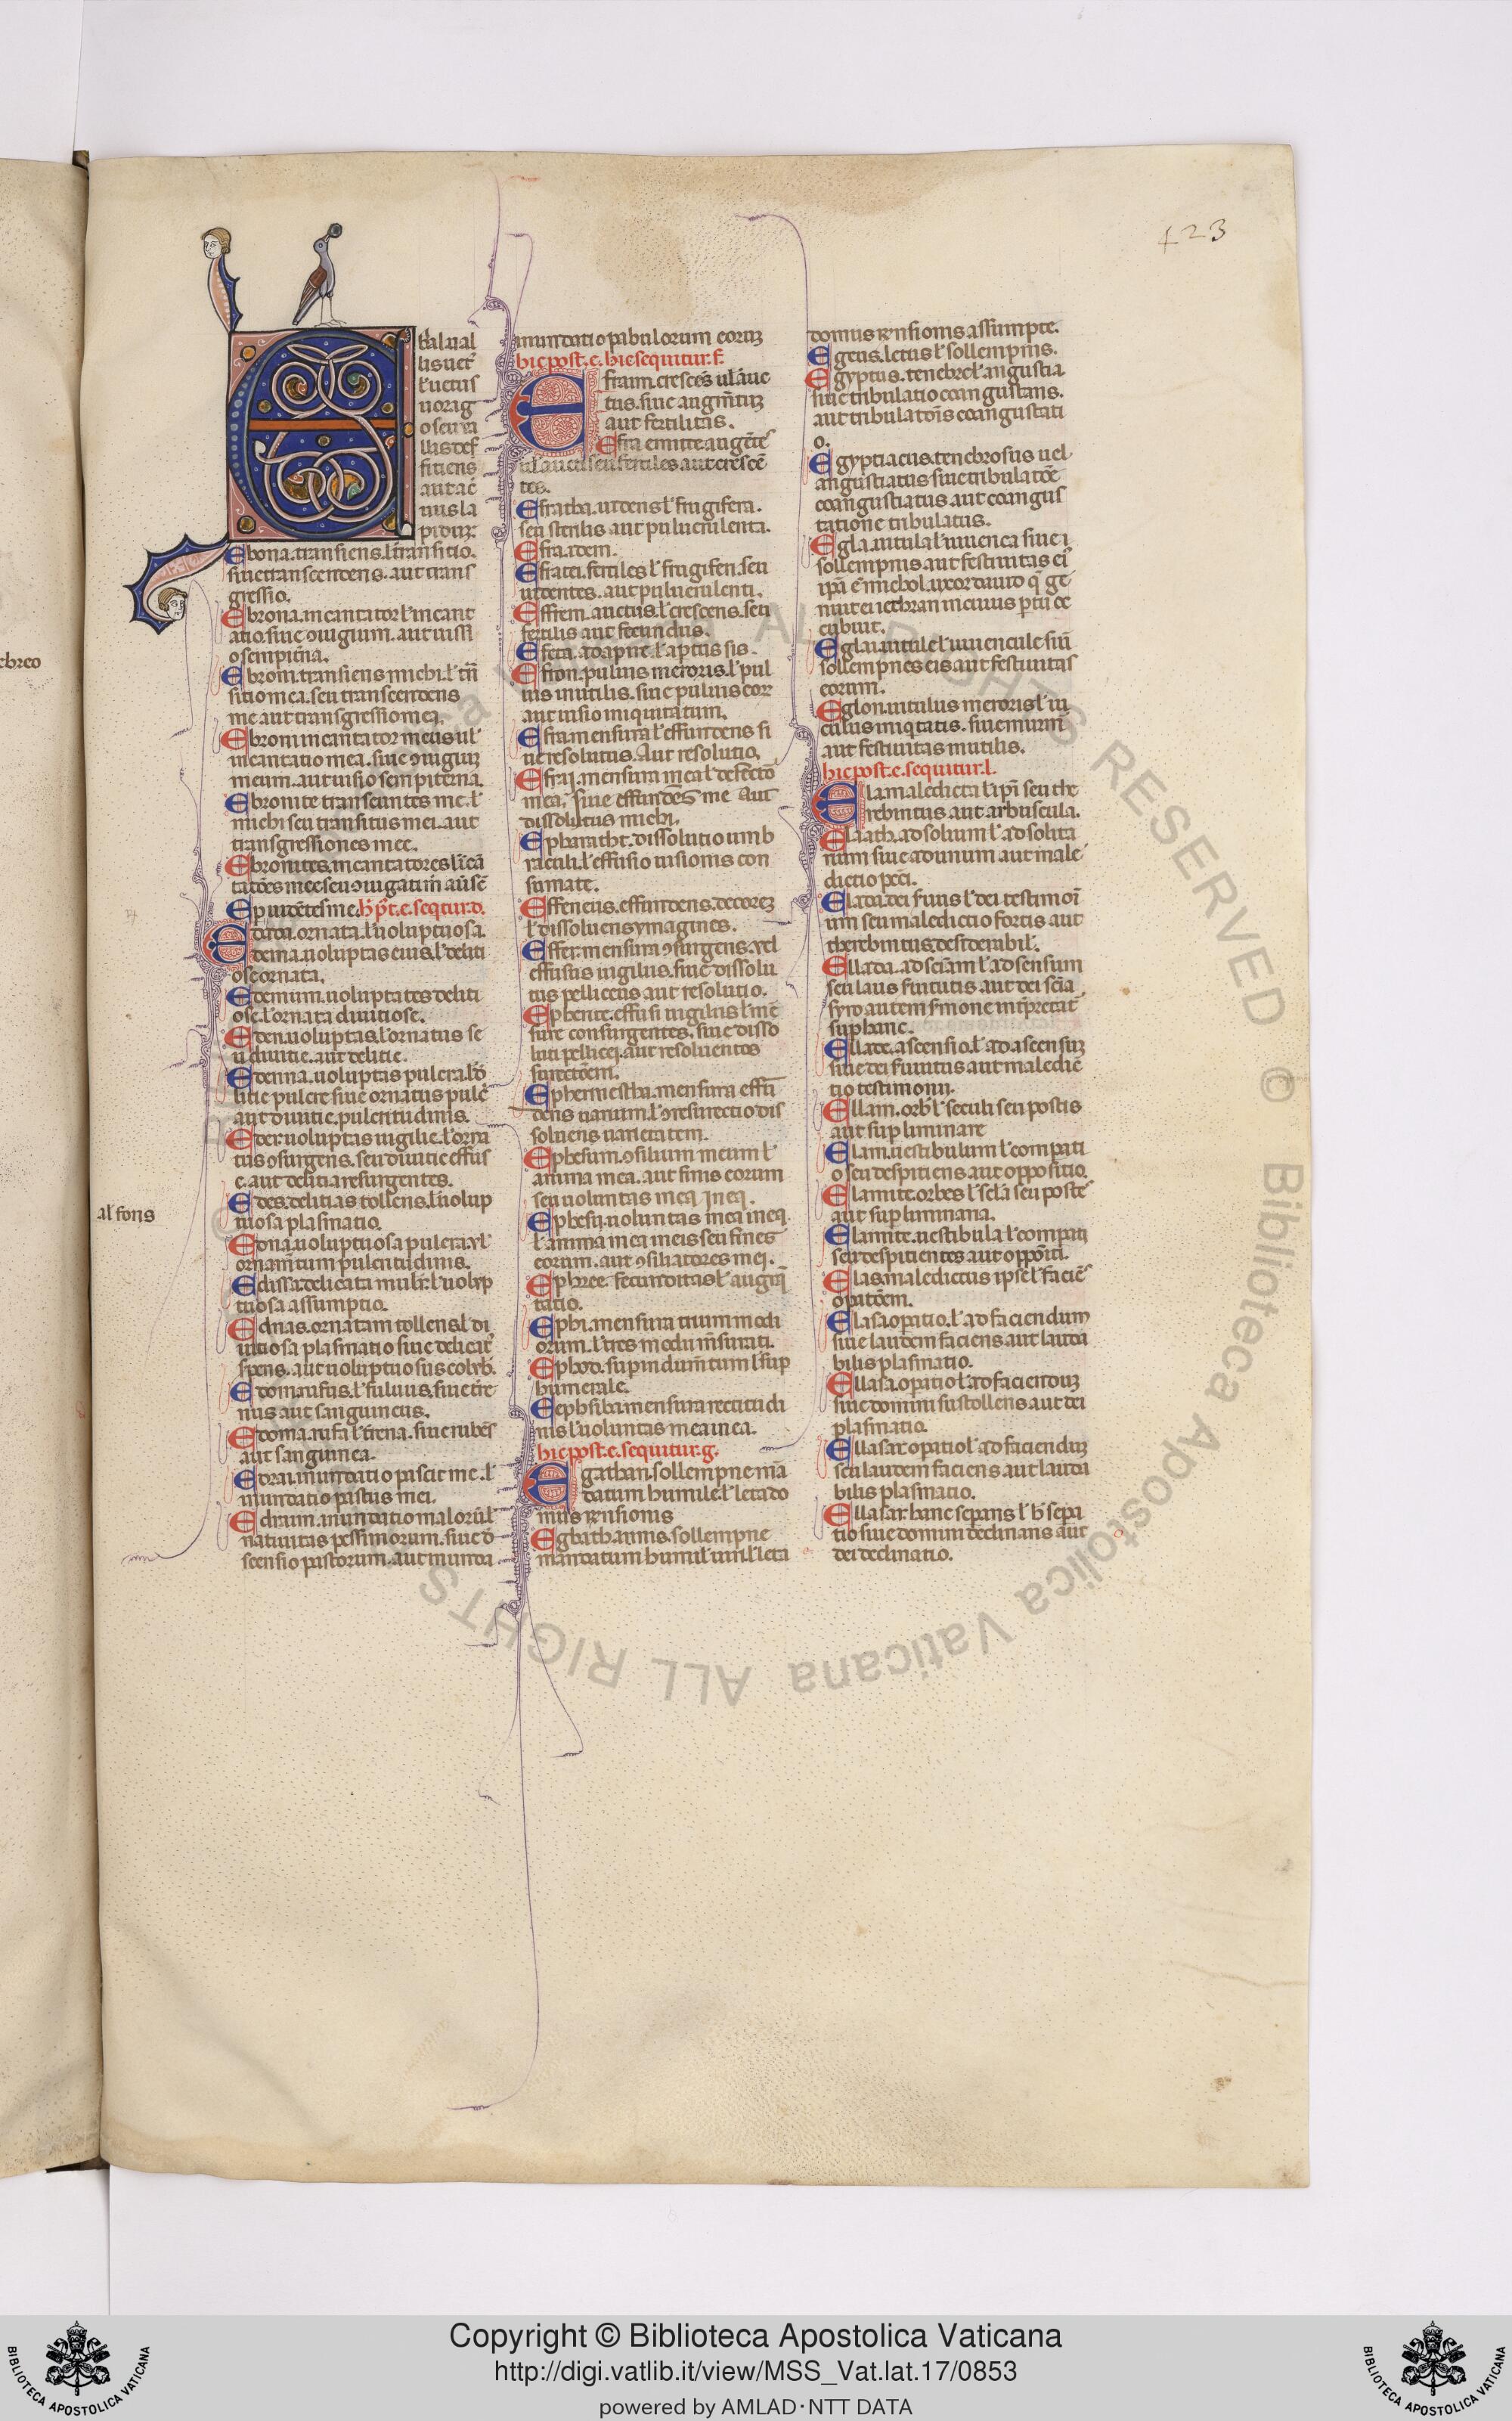 423
ebreo
al' fons
Ebal ual
lis uet'
l' uetus
uorag
o seu ua
llis def
sitiens
aut ac
uus la
pidum
Ebona. transiens. l' transitio.
siue transcendens. aut trans
gressio.
Ebrona. incantator l' incant
atio. siue 9iugium. aut uisi
o sempit̄na.
Ebroni. transiens michi. l' trā
sitio mea. seu transcendens
me aut transgressio mea.
Ebroni incantator meus ul'
incantatio mea. siue 9iugiuz
meum. aut uisio sempiterna.
Ebronite transeuntes me. l'
michi seu transitus mei. aut
transgressiones mee.
Ebronites. incantatores l' icā
tatōes mee seu
hic post. e. seqitur. d.
Edada. ornata. l' uoluptuosa.
Edema. uoluptas eius. l' deliti
ose ornata.
Edemum. uoluptates deliti
ose. l' ornata diuitiose.
Eden. uoluptas. l' ornatus se
u diuitie. aut delitie.
Edenna. uoluptas pulcra. l' de
litie pulcre siue ornatus pulc̄
aut diuitie. pulcritudinis.
Eder. uoluptas uigilie. l' orna
tus 9surgens. seu diuitie effus
e. aut delitia resurgentes.
Edes. delitias tollens. l' uolup
tuosa plasmatio.
Edna. uoluptuosa pulcra. ul'
ornam̄tum pulcritudinis.
Edissa. delicata mulier. l' uolup
tuosa assumptio.
Ednas. ornatam tollens. l' di
uitiosa plasmatio siue delicat'
spens. aut uoluptuosus
Edom. rufus. l' fuluus. siue t̄re
nus aut sanguineus.
Edoma. rufa l' t̄rena. siue rubēs
aut sanguinea.
Edrai. inundatio pascit me. l'
inundatio pastus mei.
Edrum. inundatio malorū l'
natiuitas pessimorum. siue d
scensio pastorum. aut inunda
inundatio pabulorum eorum
hic post. e. hic sequitur. f.
Efraim. crescēs ul' auc
tus. siue augm̄tum
aut fertilitas.
Efra emitte augētē
ul' auctu seu fertiles aut crescē
tes.
Efratha. urdens l' frugifera.
seu sterilis aut puluerulenta.
Efra. idem.
Efratei. fertiles l' frugiferi. seu
urdentes. aut puluerulenti.
Effrem. auctus. l' crescens. seu
fertilis aut fecundus.
Efeta. adaperire. l' apertus sis.
Efron. puluis meroris. l' pul
uis inutilis. siue puluis eor
aut uisio iniquitatum.
Efra mensura l' effundens si
ue resolutus. Aut resolutio.
Efrai. mensura mea l' defectō
mea. siue effundēs me aut
dissolutus michi.
Epharatht. dissolutio umb
raculi. l' effusio uisionis con
sumate.
Effeneus. effundens. decorez
l' dissoluens ymagines.
Effer. mensura 9surgens. uel
effusus uigilus. siue dissolu
tus pelliceus aut resolutio.
Epherite. effusi uigilus l' mē
sure consurgentes. siue disso
luti pellicei. aut resoluentes
Ephermesthia. mensura effū
dens uarium. l' 9resurrectio dis
soluens uarietatem.
Ephesum. 9silium meum l'
anima mea. aut finis eorum
seu uoluntas mea in ea.
Ephesii. uoluntas mea in ea.
l' anima mea in eis seu fines
eorum. aut 9siliatores mei.
Ephree. fecunditas l' augm̄
tatio.
Ephi. mensura trium modi
orum. l' tres modii m̄surati.
Ephod. supindum̄tum l' sup
humerale.
Eephsiba mensura rectitudi
nis l' uoluntas mea in ea.
hic post. e. sequitur. g.
Egathan. sollempne mā
datum humile. l' leta do
mus sensionis
Egbathannis. sollempne
mandatum humil' uim l' leta
domus sensionis assumpte.
Egeus. letus l' sollempnis.
Egyptus. tenebre l' angustia
siue tribulatio coangustans.
aut tribulatōis coangustati
o.
Egyptiacus. tenebrosus uel
angustiatus siue tribulatōe
coangustiatus. aut coangus
tatione tribulatus.
Egla. uitula l' iuuenca siue i
sollempnis. aut festiuitas ei'
ipā ē michol. uxor dauid q̄ ge
nuit ei iethran in cuius ptu oc
cubuit.
Eglai. uitule l' iuuencule siū
sollempnes eis aut festiuitas
eorum.
Eglon. uitulus meroris l' iu
culus iniqtatis. siue
aut festiuitas inutilis.
hic post. e. sequitur. l.
Ela maledicta l' ipī seu the
rebintus aut arbuscula.
Elaath. ad solium l' ad solita
num siue ad unum aut male
dictio pcti.
Elada. dei seruus l' dei testimoī
um seu maledictio fortis aut
therebintus desiderabil'.
Ellada. ad sciam l' ad sensum
seu laus seruitutis aut dei scīa
syro autem sermone int̄pretat'
sup hanc.
Ellade. ascensio. l' ad ascensuz
siue dei seruitus aut maledic
tio testimonii.
Ellam. orb' l' seculi seu postis
aut sup liminare
Elam. uestibulum l' compati
o seu despitiens aut oppositio.
Elamite. orbes l' scla seu postē
aut sup liminaria.
Elamite. uestibula. l' compati
seu despitientes aut oppositi.
Elas. maledictus ipse l' faciē
opatōem.
Elasa. opatio. l' ad faciendum
siue laudem faciens aut lauda
bilis plasmatio.
Ellasa. opatio l' ad faciendum
siue domini sustollens aut dei
plasmatio.
Ellasar. opatio l' ad faciendum
seu laudem faciens aut lauda
bilis plasmatio.
Ellasar. hanc separans l' h̄ sepa
tio siue domini declinans aut
dei declinatio.
Copyright © Biblioteca Apostolica Vaticana
http://digi.vatlib.it/view/MSS_Vat.lat.17/0853
powered by AMLAD·NTT DATA
BIBLIOTECA APOSTOLICA VATICANA
BIBLIOTECA APOSTOLICA VATICANA